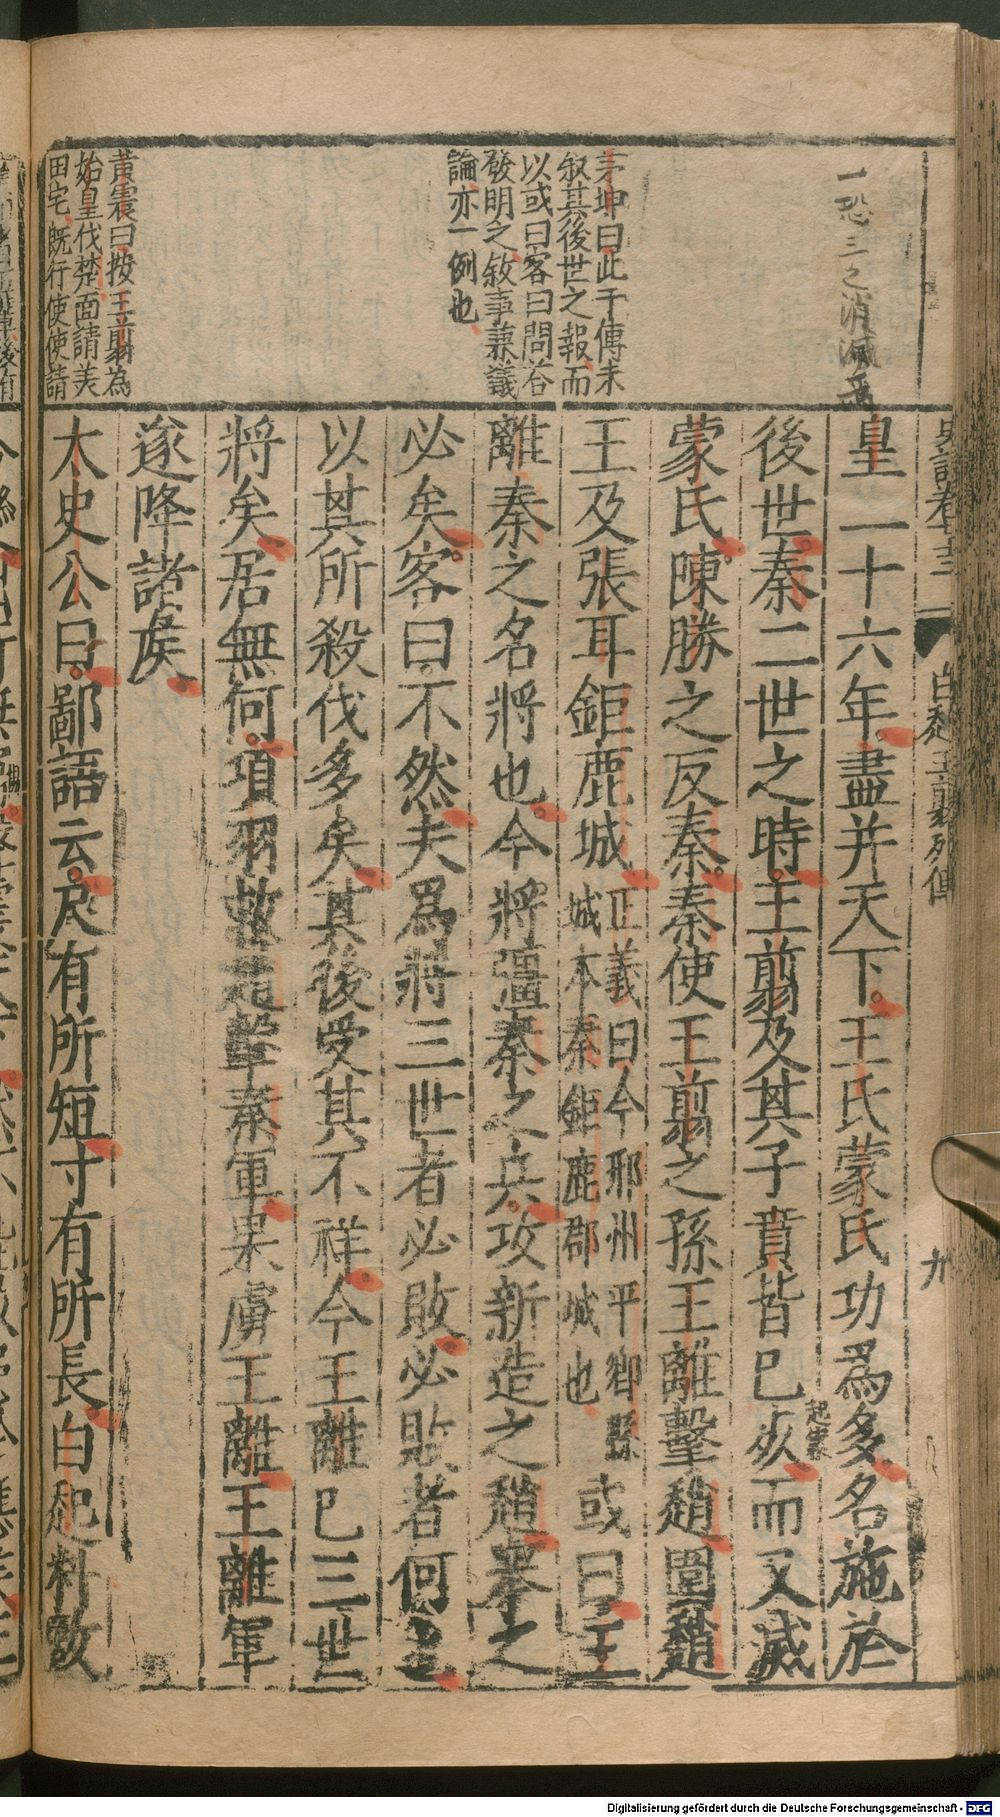 皇二十六年盡并天下王氏蒙氏功為多名施於
後世秦二世之時王翦及其子賁皆已死而又滅
蒙氏陳勝之反秦秦使王翦之孫王離擊趙圍趙
王及張耳鉅鹿城
正義曰今邢州平鄉縣
城本秦鉅鹿郡城也
或曰王
離秦之名將也今將彊秦之兵攻新造之趙舉之
必矣客曰不然夫為將三世者必敗必敗者何也
以其所殺伐多矣其後受其不祥今王離已三世
將矣居無何項羽救趙擊秦軍果虜王離王離軍
遂降諸矦
太史公曰鄙語云尺有所短寸有所長白起料敵
一恐三之消滅
茅坤曰此于傳末
叙其後世之報而
以或曰客曰問荅
發明之敘事兼議
論亦一例也
黃震曰按王翦為
始皇伐楚面請美
田宅既行使使請
白起王翦列傳
九
Digitalisierung gefördert durch die Deutsche Forschungsgemeinschaft - DFG